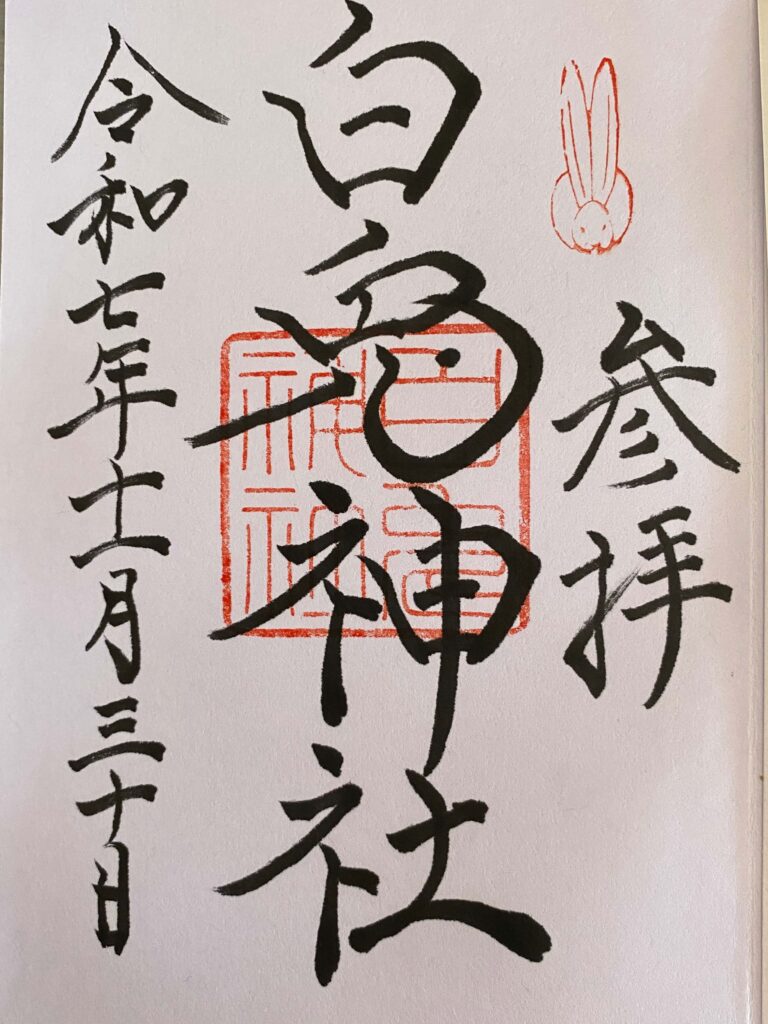 参拝
白兎神社
令和七年十一月三十日